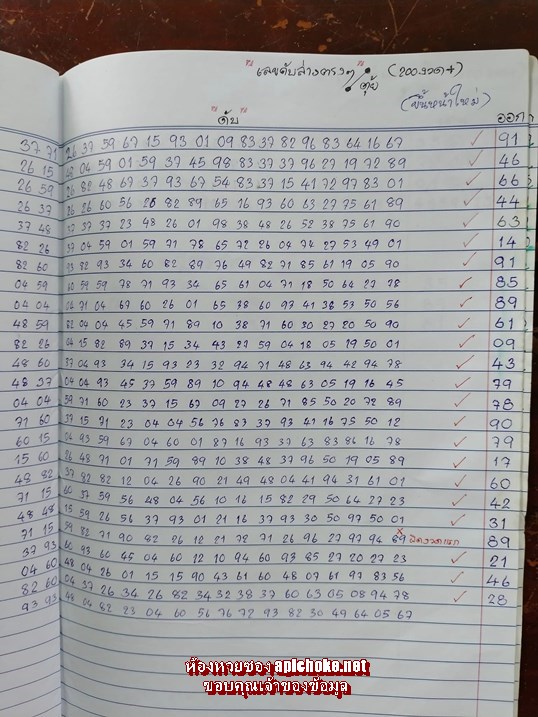 "เลขดับล่างตรงๆ" (200งวด+)
ตุ้ย
(ขึ้นหน้าใหม่)
"ดับ" ออก
37 71 26 37 59 67 15 93 01 09 83 37 82 96 83 64 16 67 ✓ 91
26 15 48 04 59 01 59 37 45 98 83 37 37 96 27 19 72 89 ✓ 46
26 59 26 82 48 67 37 93 67 54 83 37 15 41 72 97 83 01 ✓ 66
26 37 26 26 60 56 26 82 89 65 16 93 60 63 27 75 61 89 ✓ 44
37 48 37 37 37 23 48 26 01 98 38 48 26 52 38 75 61 90 ✓ 63
82 26 37 04 59 01 59 71 78 65 72 26 04 74 27 53 49 01 ✓ 14
82 60 93 82 93 34 60 82 89 76 49 82 71 85 61 19 05 90 ✓ 91
04 59 60 59 59 78 71 93 34 65 61 04 71 18 50 64 27 78 ✓ 85
04 04 04 71 04 67 60 26 01 65 78 60 97 41 38 53 50 56 ✓ 89
48 59 82 04 04 45 59 71 89 10 38 71 60 30 27 20 50 90 ✓ 61
82 26 04 15 82 89 37 15 34 43 27 59 04 18 05 19 50 01 ✓ 09
48 60 37 04 93 34 15 93 23 32 94 71 48 63 94 42 94 78 ✓ 43
48 37 04 04 93 45 37 59 89 10 94 48 48 63 05 19 16 45 ✓ 79
04 04 59 71 60 23 37 15 67 09 27 26 71 85 50 20 72 89 ✓ 78
71 60 37 15 71 23 04 04 56 76 83 37 93 41 16 75 50 12 ✓ 90
60 15 04 93 59 67 04 60 01 87 16 93 37 63 83 86 16 78 ✓ 79
15 60 26 48 71 01 71 59 89 10 38 48 37 96 50 19 05 89 ✓ 17
48 82 37 82 82 12 04 26 90 21 49 48 04 41 94 31 61 01 ✓ 60
71 15 60 37 59 56 48 04 56 10 16 15 82 29 50 64 27 23 ✓ 42
48 48 15 59 26 56 37 93 01 21 16 37 93 30 50 97 50 01 ✓ 31
71 15 59 82 71 90 82 26 12 21 72 71 26 96 27 97 94 89 ผิดงวดแรก 89
37 93 60 93 60 45 04 60 12 10 94 60 93 85 27 20 27 23 ✓ 21
04 60 48 04 26 01 15 15 90 43 61 60 48 07 61 97 83 56 ✓ 46
82 60 04 37 26 34 26 82 34 32 38 37 60 63 05 08 94 78 ✓ 28
93 93 48 04 82 23 04 60 56 76 72 93 82 30 49 64 05 67
ห้องหวยซอง apichoke.net
ขอบคุณเจ้าของข้อมูล